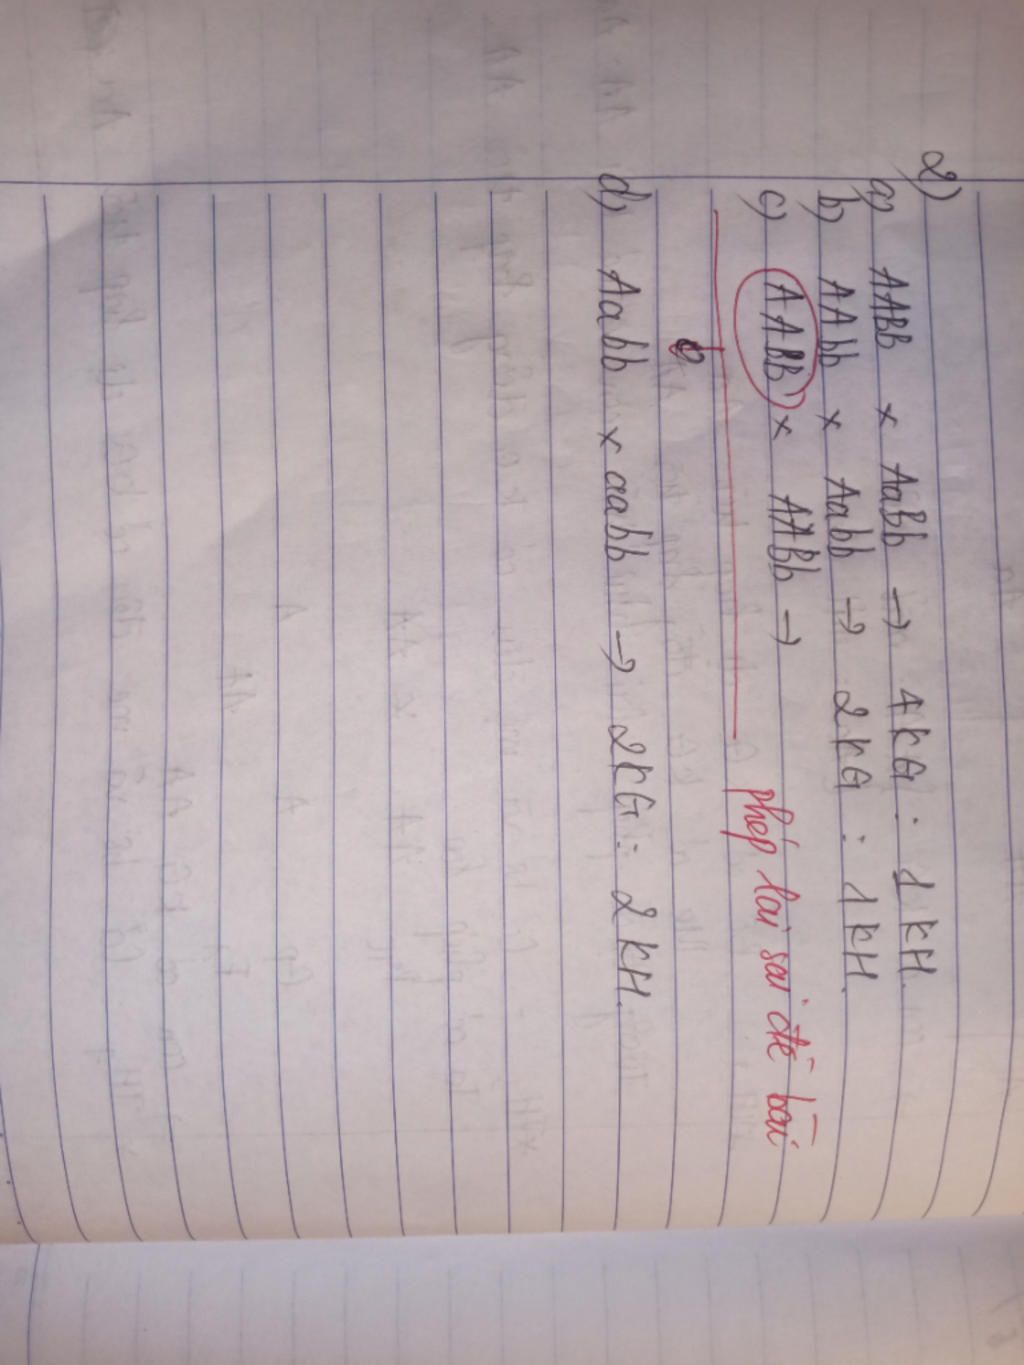 2)
a) AABB x AaBb → 4KG : 1KH.
b) AAbb x Aabb → 2KG : 1KH.
c) AABB x AABb →
phép lai sai đề bài
d) Aabb x aabb → 2KG : 2KH.